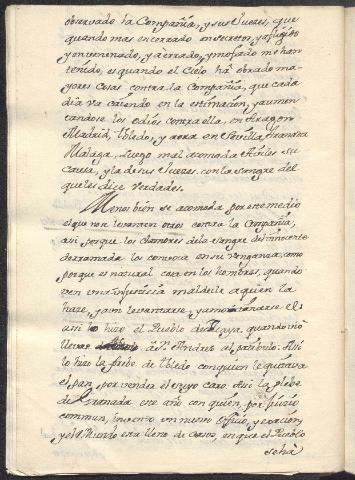 observado la Compañia, y sus Jueces, que
quando mas encerrado en secretos, y afligido
y envenenado, y aerrado, y mofado me han
tenido, es quando el Cielo ha obrado ma
yores cosas contra la Compañia, que cada
dia va caiendo en la estimacion, y aumen
tandose los odios contra ella, en Aragon
Madrid, Toledo, y aora en Sevilla Granada
Malaga. Luego mal acomoda Aviles su
causa, y la de sus Jueces con la sangre del
que les dice verdades.
Menos bien se acomoda por este medio
el que no se levanten otros contra la Compañia,
asi porque los clamores de la sangre del innocente
derramada los convoca en su venganza, como
porque es natural cosa en los hombres, quando
ven una injusticia maldecir a quien la
hace, y aun levantarse, y amotinarse
asi lo hizo el Pueblo de quando vió
llevar de Sn. Andres al patibulo. Asi
lo hizo la plebe de Toledo con quien le quitava
el pan, por vender el suyo caro Asi la plebe
de Granada este año con quien, por juicio
comun, invento un nuevo
y el Mundo esta lleno de casos, en que el Pueblo
se ha